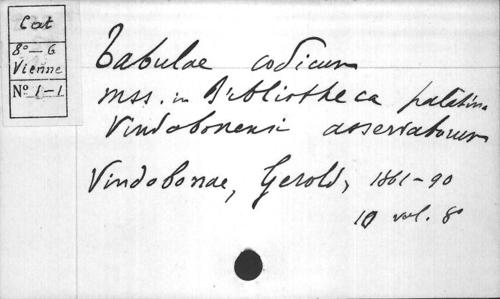 Cat
8º — G
Vienne
Nº 1-1
Tabulae codicum
mss. in Bibliotheca palatina
Vindobonensi asservatorum
Vindobonae, Gerold, 1861-90
10 vol. 8º